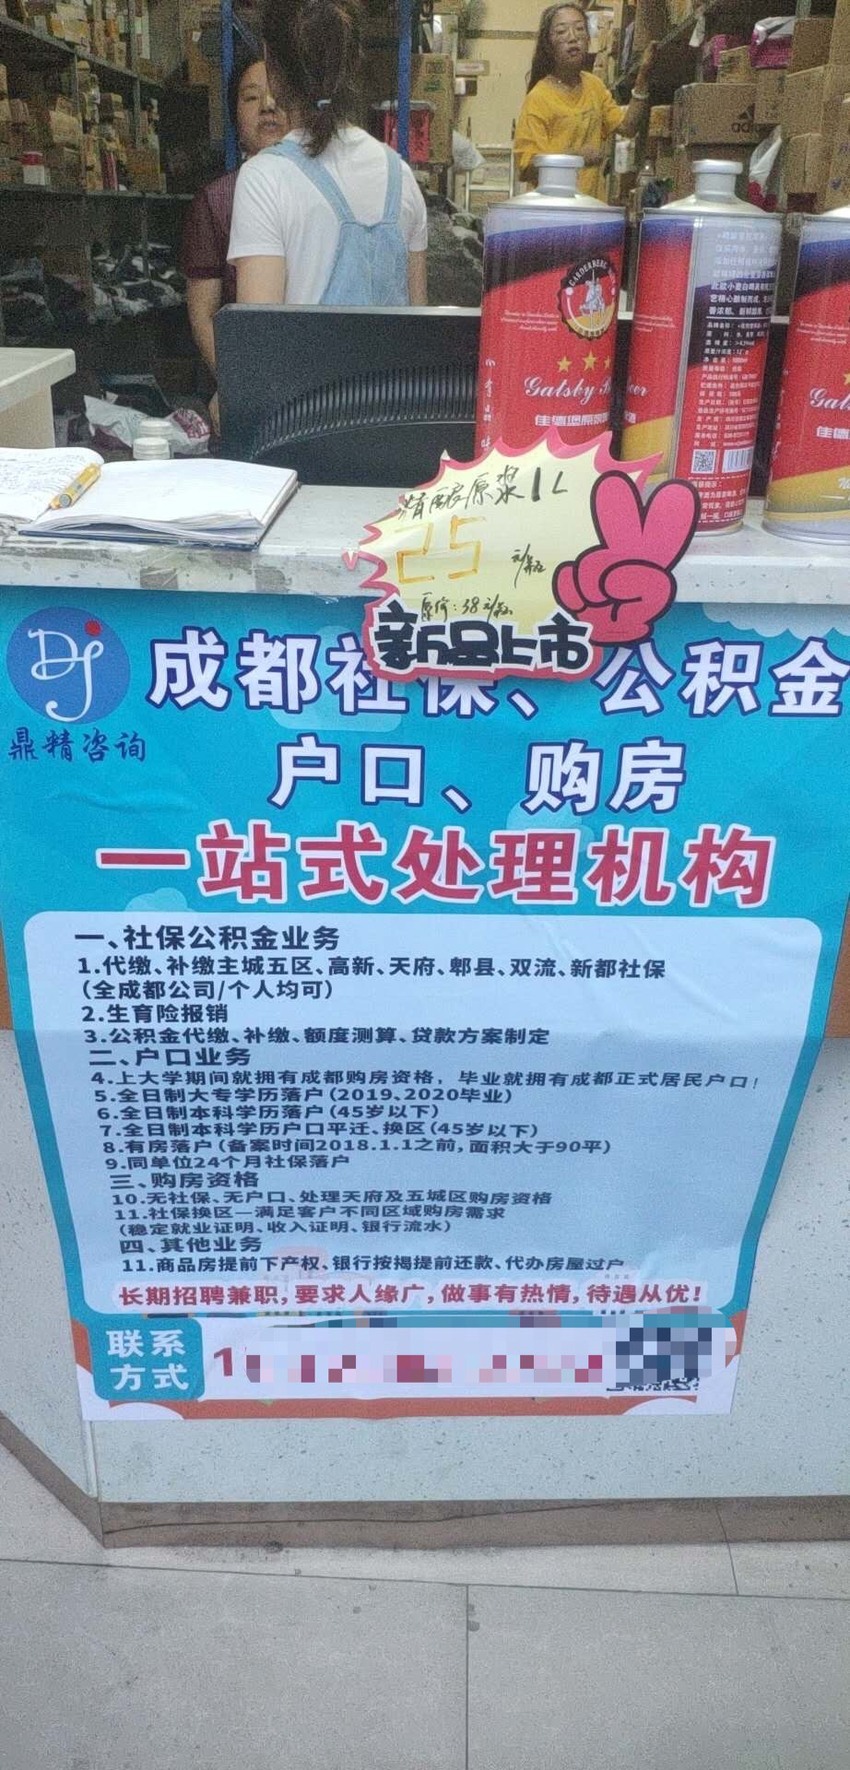 adidas
GARDENBERG
Gatsby
佳德堡原浆
精酿原浆1L
25
元/瓶
原价:38元/瓶
新品上市
DJ
鼎精咨询
成都社保、公积金
户口、购房
一站式处理机构
一、社保公积金业务
1.代缴、补缴主城五区、高新、天府、郫县、双流、新都社保
(全成都公司/个人均可)
2.生育险报销
3.公积金代缴、补缴、额度测算、贷款方案制定
二、户口业务
4.上大学期间就拥有成都购房资格，毕业就拥有成都正式居民户口！
5.全日制大专学历落户(2019、2020毕业)
6.全日制本科学历落户(45岁以下)
7.全日制本科学历户口平迁、换区(45岁以下)
8.有房落户(备案时间2018.1.1之前,面积大于90平)
9.同单位24个月社保落户
三、购房资格
10.无社保、无户口、处理天府及五城区购房资格
11.社保换区—满足客户不同区域购房需求
(稳定就业证明、收入证明、银行流水)
四、其他业务
11.商品房提前下产权、银行按揭提前还款、代办房屋过户
长期招聘兼职,要求人缘广,做事有热情,待遇从优!
联系
方式
1